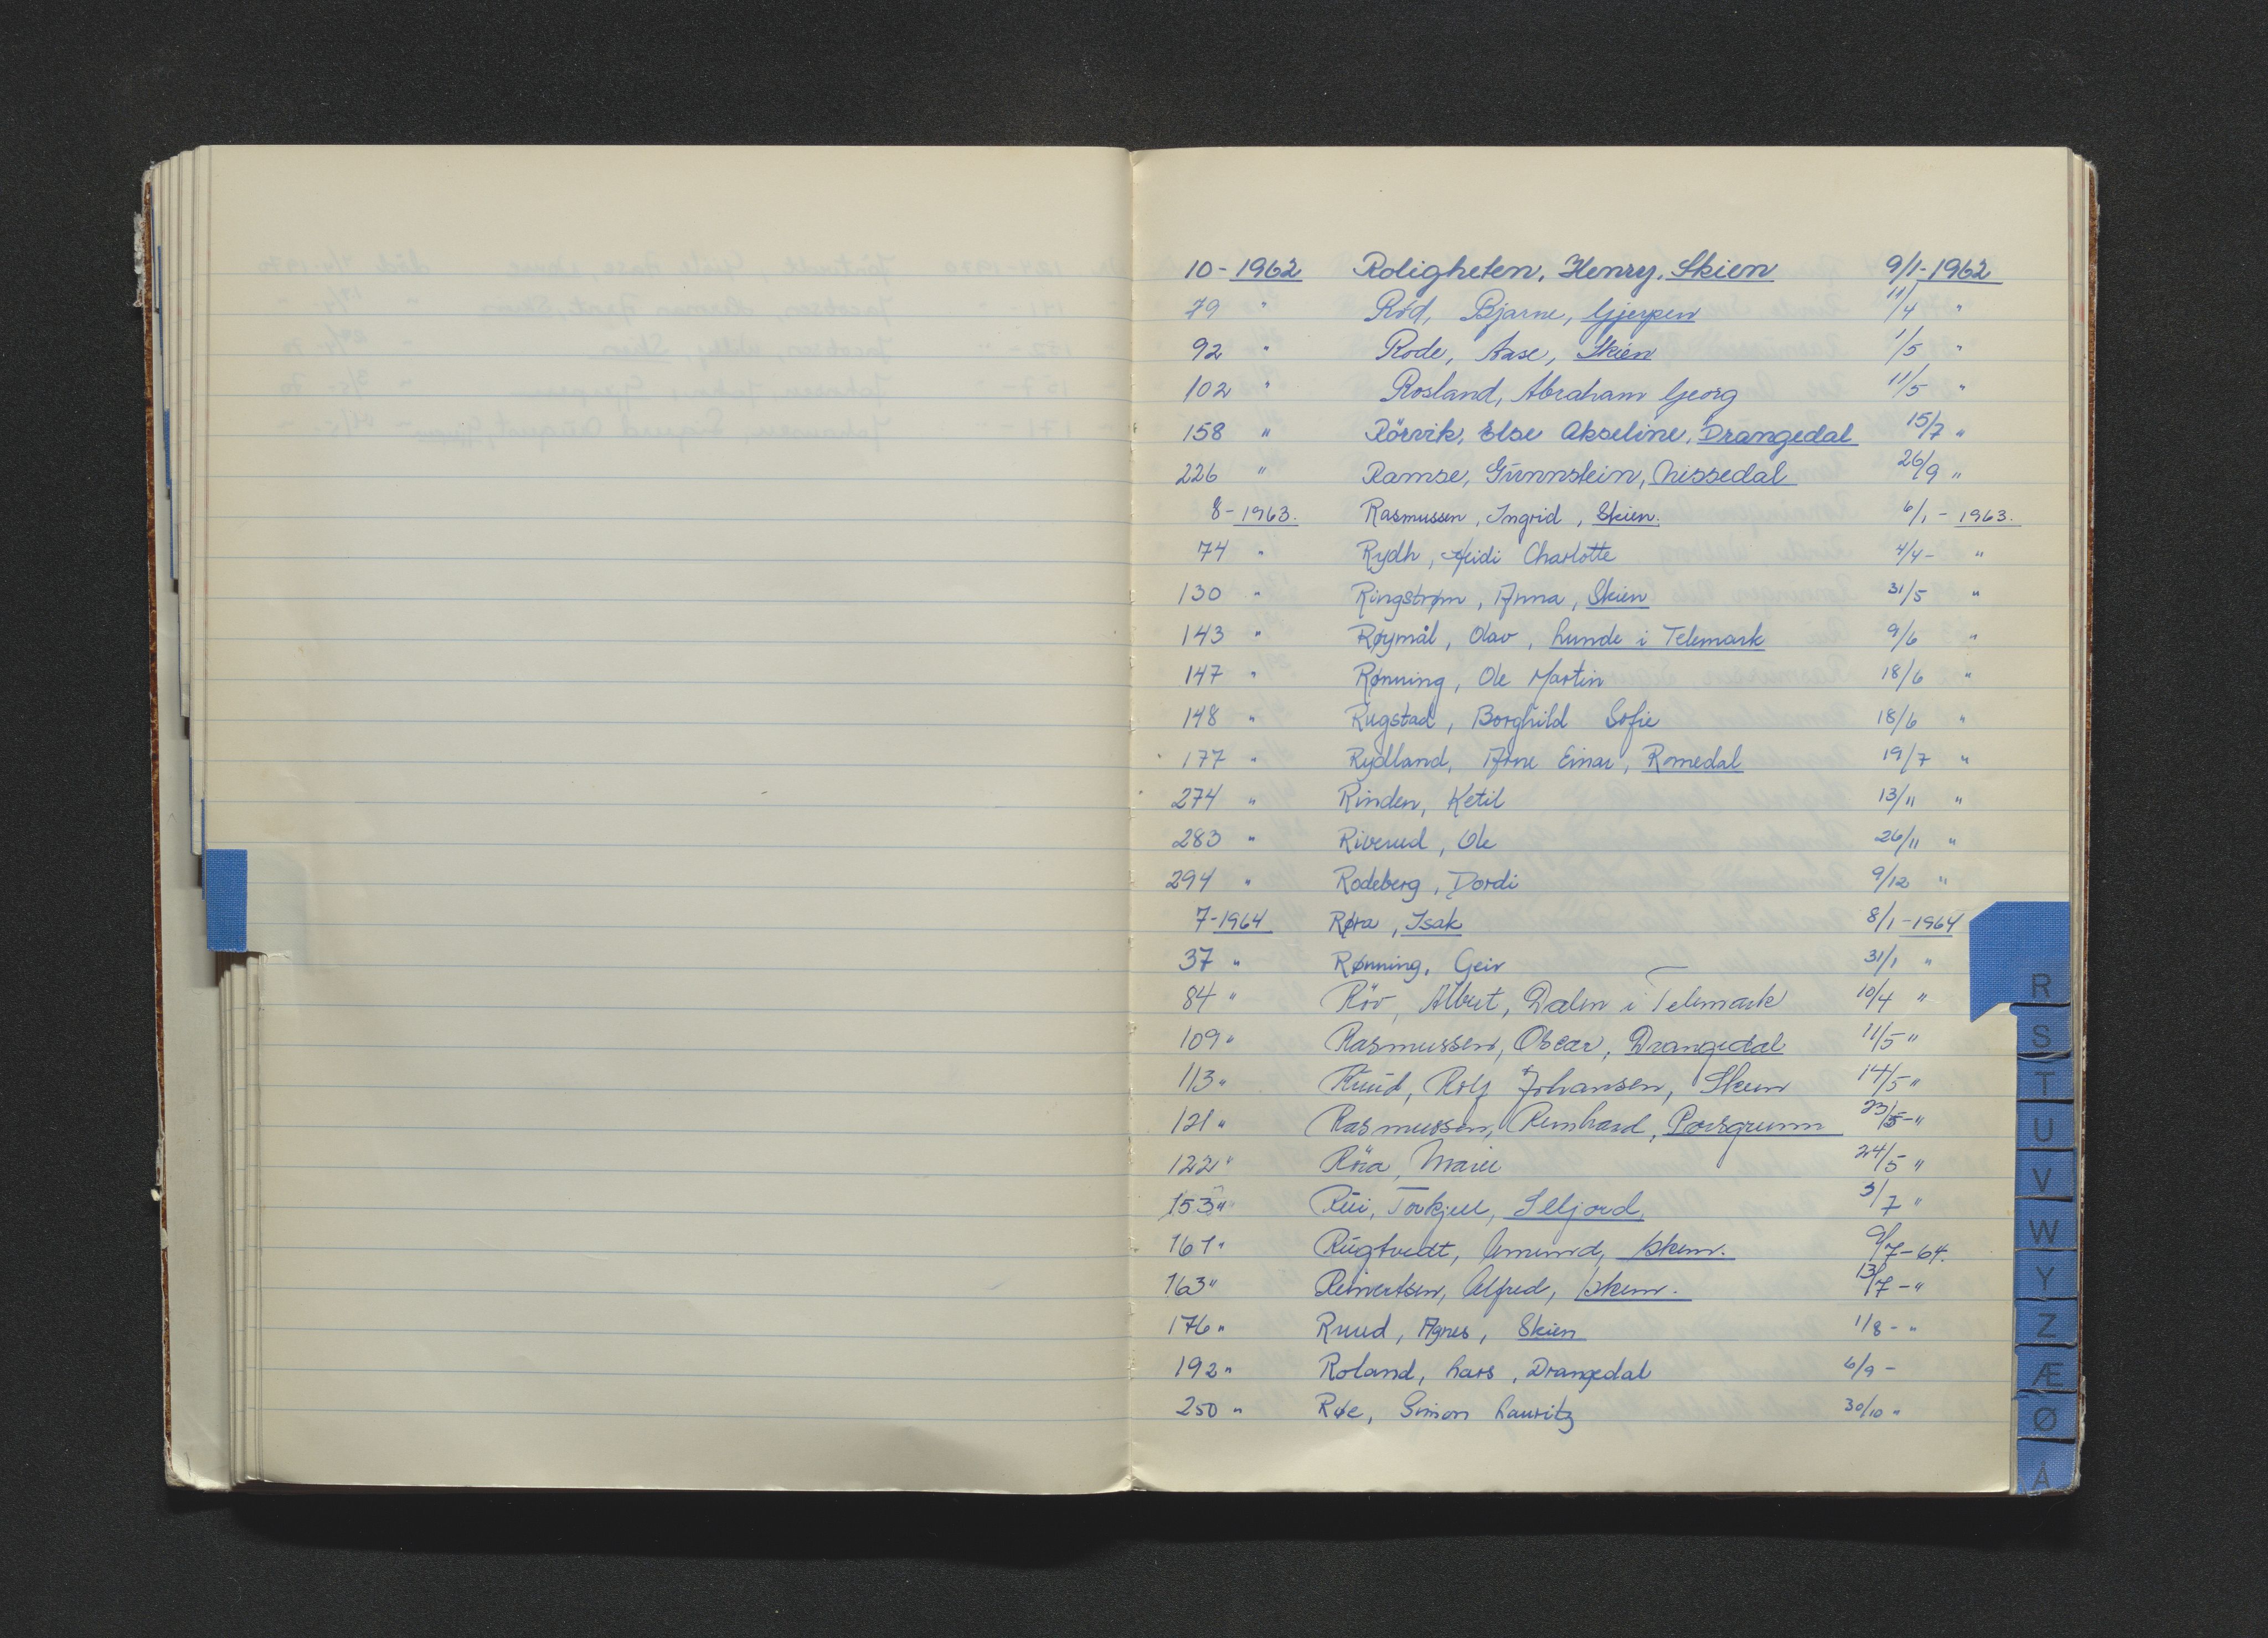 10-1962 Roligheten, Henry, Skien 9/1-1962
79 " Röd, Bjarne, Gjerpen 11/4 "
92 " Rode, Aase, Skien 1/5 "
102 " Rosland, Abraham Georg 11/5 "
158 " Rörvik, Else Akseline, Drangedal 15/7 "
226 " Ramse, Gunnstein, Nissedal 26/9 "
8-1963. Rasmussen, Ingrid, Skien. 6/1-1963.
74 " Rydh, Heidi Charlotte 4/4- "
130 " Ringstrøm, Anna, Skien 31/5 "
143 " Røymål, Olav, Lunde i Telemark 9/6 "
147 " Rønning, Ole Martin 18/6 "
148 " Rugstad, Borghild Sofie 18/6 "
177 " Rydland, Arne Einar, Romedal 19/7 "
274 " Rinden, Ketil 13/11 "
283 " Riverud, Ole 26/11 "
294 " Rodeberg, Dordi 9/12 "
7-1964 Røra, Isak 8/1-1964
37 " Rønning, Geir 31/1 "
84 " Röv, Albert, Dalen i Telemark 10/4 "
109 " Rasmussen, Oscar, Drangedal 11/5 "
113 " Ruud, Rolf Johansen, Skien 14/5 "
121 " Rasmussen, Reinhard, Porsgrunn 23/5-"
122 " Röra, Marie 24/5 "
153 " Rui, Torkjell, Seljord. 3/7 "
161 " Rugtvedt, Amund, Skien. 9/7-64.
163 " Reinertsen, Alfred, Skien. 13/7-"
176 " Ruud, Agnes, Skien 1/8-"
192 " Roland, Lars, Drangedal 6/9-
250 " Røe, Simon Lauritz 30/10 "
R
S
T
U
V
W
Y
Z
Æ
Ø
Å